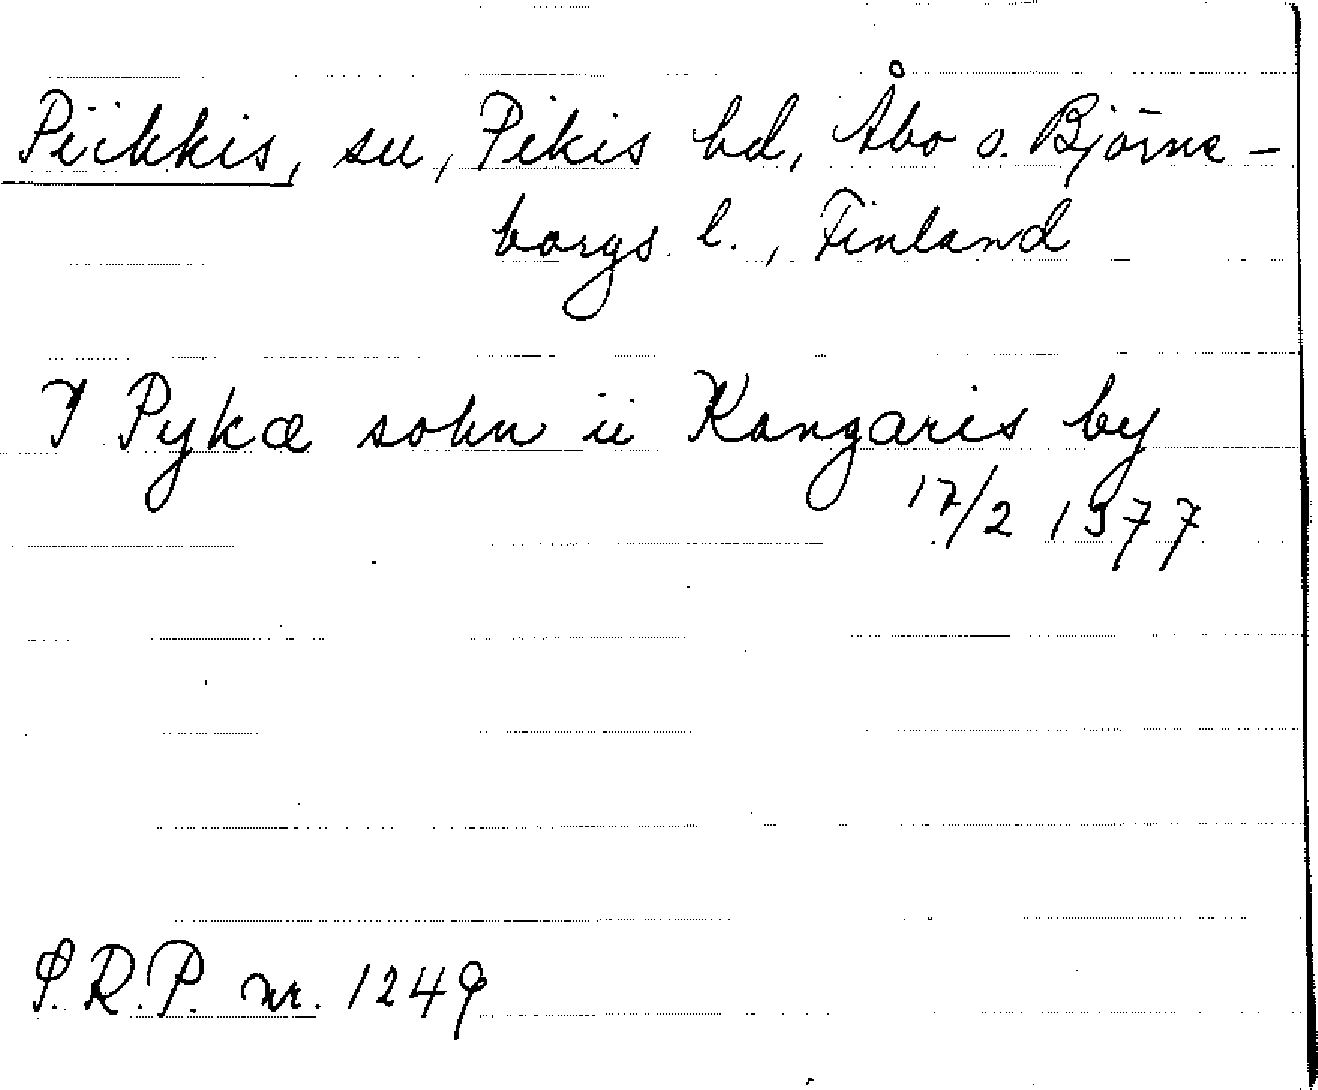 Piikkis, sn, Pikis hd, Åbo o. Björne-
borgs l., Finland
J Pykæ sokn ii Kangaris by
17/2 1377
S.R.P. nr. 1249